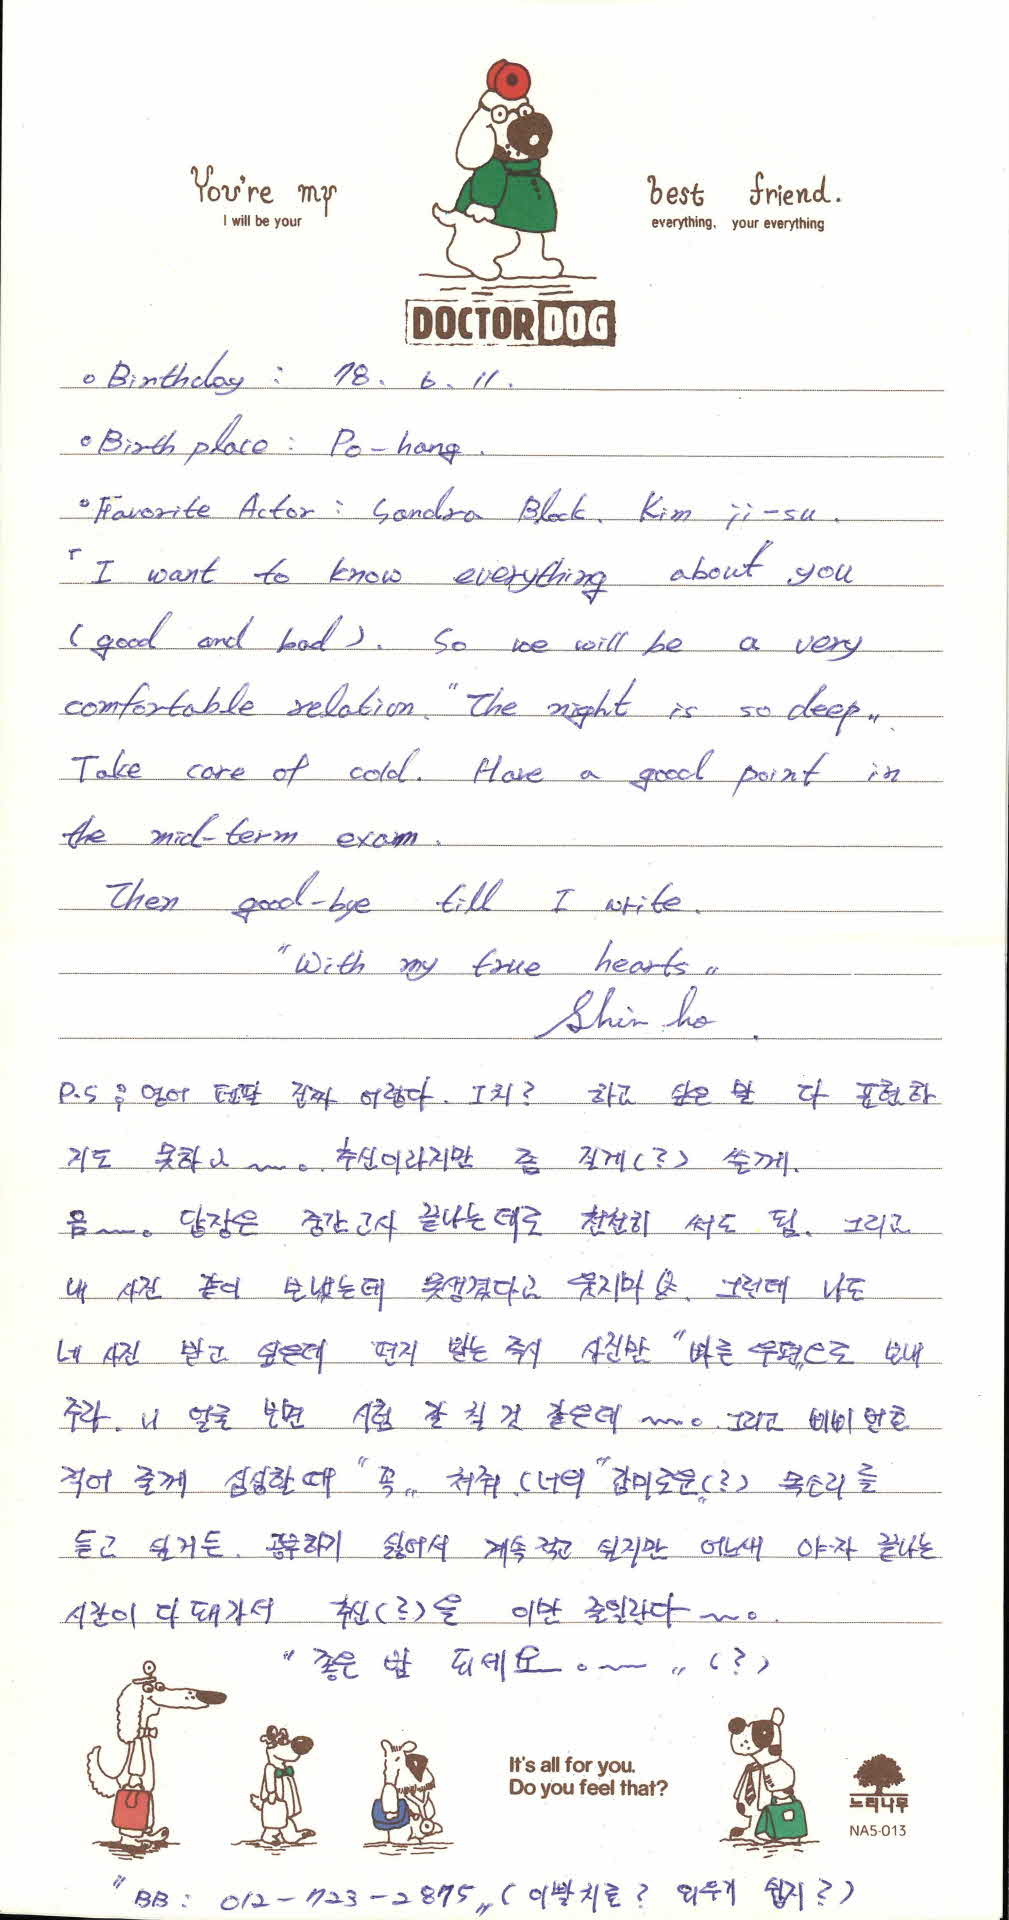 You're my best friend.
I will be your everything, your everything
DOCTOR DOG
° Birthday : 78. 6. 11.
° Birth place : Po-hang.
° Favorite Actor : Sandra Block. Kim ji-su.
「I want to know everything about you
(good and bad). So we will be a very
comfortable relation. "The night is so deep„.
Take care of cold. Have a good point in
the mid-term exam.
Then good-bye till I write.
"With my true hearts„
Shin ho.
P.S ; 영어 펜팔 진짜 어렵다. 그치? 하고 싶은 말 다 표현하
지도 못하고 ~~。 추신이라지만 좀 길게(?) 쓸께.
음~~。 답장은 중간고사 끝나는데로 천천히 써도 됨. 그리고
내 사진 같이 보냈는데 못생겼다고 웃지마. 그런데 나도
네 사진 받고 싶은데 편지 받는 즉시 사진만 "빠른 우편„으로 보내
주라. 니 얼굴 보면 시험 잘 칠 것 같은데 ~~。 그리고 삐삐 번호
적어 줄께 심심할 때 "꼭„ 쳐줘. (너의 "감미로운„(?) 목소리를
듣고 싶거든. 공부하기 싫어서 계속 적고 싶지만 어느새 야·자 끝나는
시간이 다 돼가서 추신(?)을 이만 줄인란다 ~~。
"좋은 밤 되세요 。~~„ (?)
It's all for you.
Do you feel that?
느티나무
NA5-013
"BB : 012-723-2875„ (이빨치료? 외우기 쉽지?)